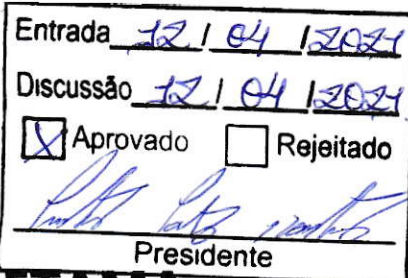 Entrada 12 / 04 / 2021
Discussão 12 / 04 / 2021
X Aprovado Rejeitado
Presidente